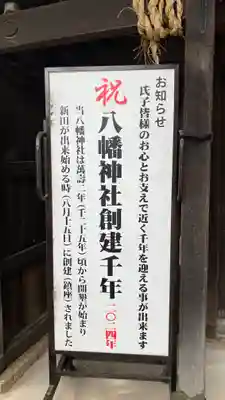 お知らせ
氏子皆様のお心とお支えで近く千年を迎える事が出来ます
祝 八幡神社創建千年 二〇二四年
当八幡神社は萬寿二年(千二十五年)頃から開墾が始まり
新田が出来始める時(八月十五日)に創建(鎮座)されました